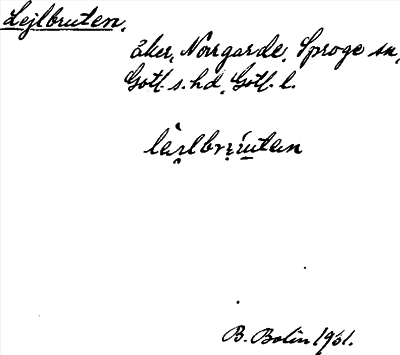 Lejlbruten,
åker, Norrgarde, Sproge sn,
Gotl. s. hd, Gotl. l.
B. Bolin 1931.